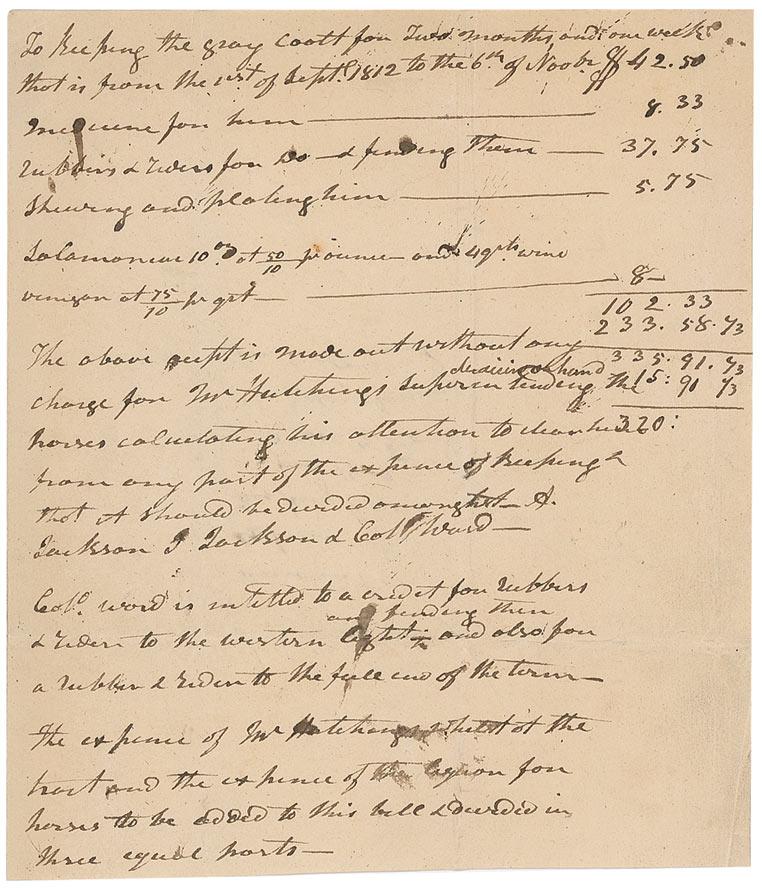 To Keeping the gray coalt for Two months and one week
that is from the 1st of Sept. 1812 to the 6th of Novbr $42.50
medicine for him — 8.33
Rubbers & Riders for Do — & finding Them — 37.75
Shewing and plateing him — 5.75
Salamoniac 10 oz at 50/10 pr ounce — and 4 qrts wine
vinegar at 75/10 pr qrt — 8—
102.33
233.58.73
335.91.73
The above acpt is made out without any
charge for Mr Hutchings Superintending the 15:91 73
horses calculating his attention to clear him 320:
from any part of the expence of Keeping
that it should be devided amongst — A.
Jackson J Jackson & Colo Ward —
Colo Ward is intitled to a credit for Rubbers
and finding them
& Riders to the western and also for
a Rubber & Rider to the full end of the term —
The expence of Mr Hutchings whilst at the
tract and the expence of the for
horses to be added to this bill & devided in
three equal parts —